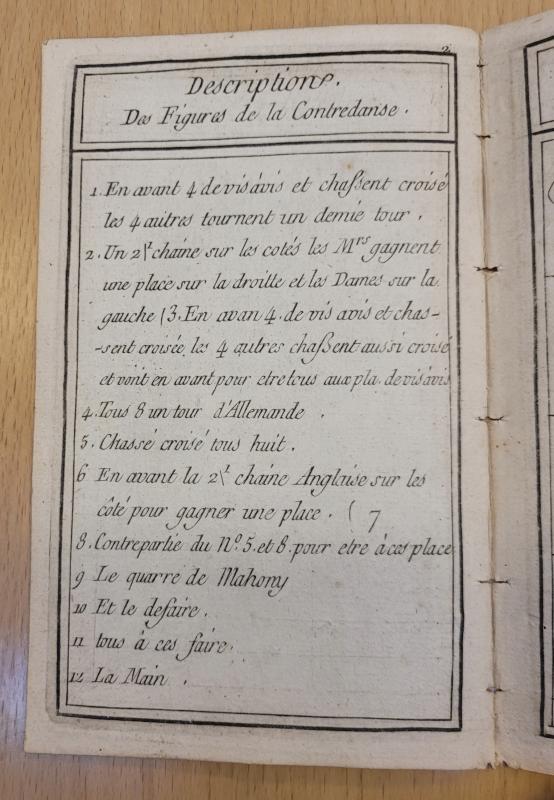 2.
Description.
Des Figures de la Contredanse.
1. En avant 4 devisàvis et chaſsent croisé
les 4 autres tournent un demie tour.
2. Un 2\t chaine sur les cotés les Mrs gagnent
une place sur la droitte et les Dames sur la
gauche (3. En avan 4. de vis avis et chas-
-sent croisée, les 4 autres chaſsent aussi croisé
et vont en avant pour etre tous aux pla. devisàvis
4. Tous 8 un tour d'Allemande.
5. Chassé croisé tous huit.
6 En avant la 2\t chaine Anglaise sur les
côté pour gagner une place. ( 7
8. Contrepartie du No. 5. et 8. pour etre à ces place
9 Le quarre de Mahony
10 Et le defaire.
11 tous à ces faire.
12 La Main.